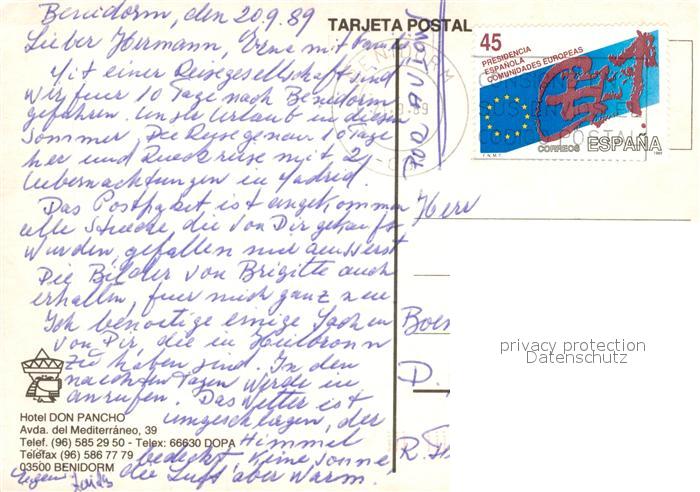 Benidorm, den 20.9.89
TARJETA POSTAL
Lieber Hermann, Erna mit
Mit einer Reisegesellschaft sind
wir fuer 10 Tage nach Benidorm
gefahren. Unser Urlaub in diesem
Sommer. Die Reise genau 10 Tage
her und Rueckreise mit 2
Uebernachtungen in Madrid.
Das Postpaket ist angekommen
alle Stuecke die von Dir gekauft
wurden, gefallen mir aeusserst
Die Bilder von Brigitte auch
erhalten, fuer mich ganz neu
Ich benoetige einige Sachen
von Dir, die in Heilbronn
zu haben sind. In den
nachsten Tagen werde ich
anrufen. Das Wetter ist
umgeschlagen, der
Himmel
bedeckt, keine Sonne
die Luft aber warm.
Hotel DON PANCHO
Avda. del Mediterráneo, 39
Telef. (96) 585 29 50 - Telex: 66630 DOPA
Telefax (96) 586 77 79
03500 BENIDORM
POR AVION
45
PRESIDENCIA
ESPAÑOLA
COMUNIDADES EUROPEAS
CORREOS ESPAÑA
F.N.M.T.
1989
Herv
D.
privacy protection
Datenschutz